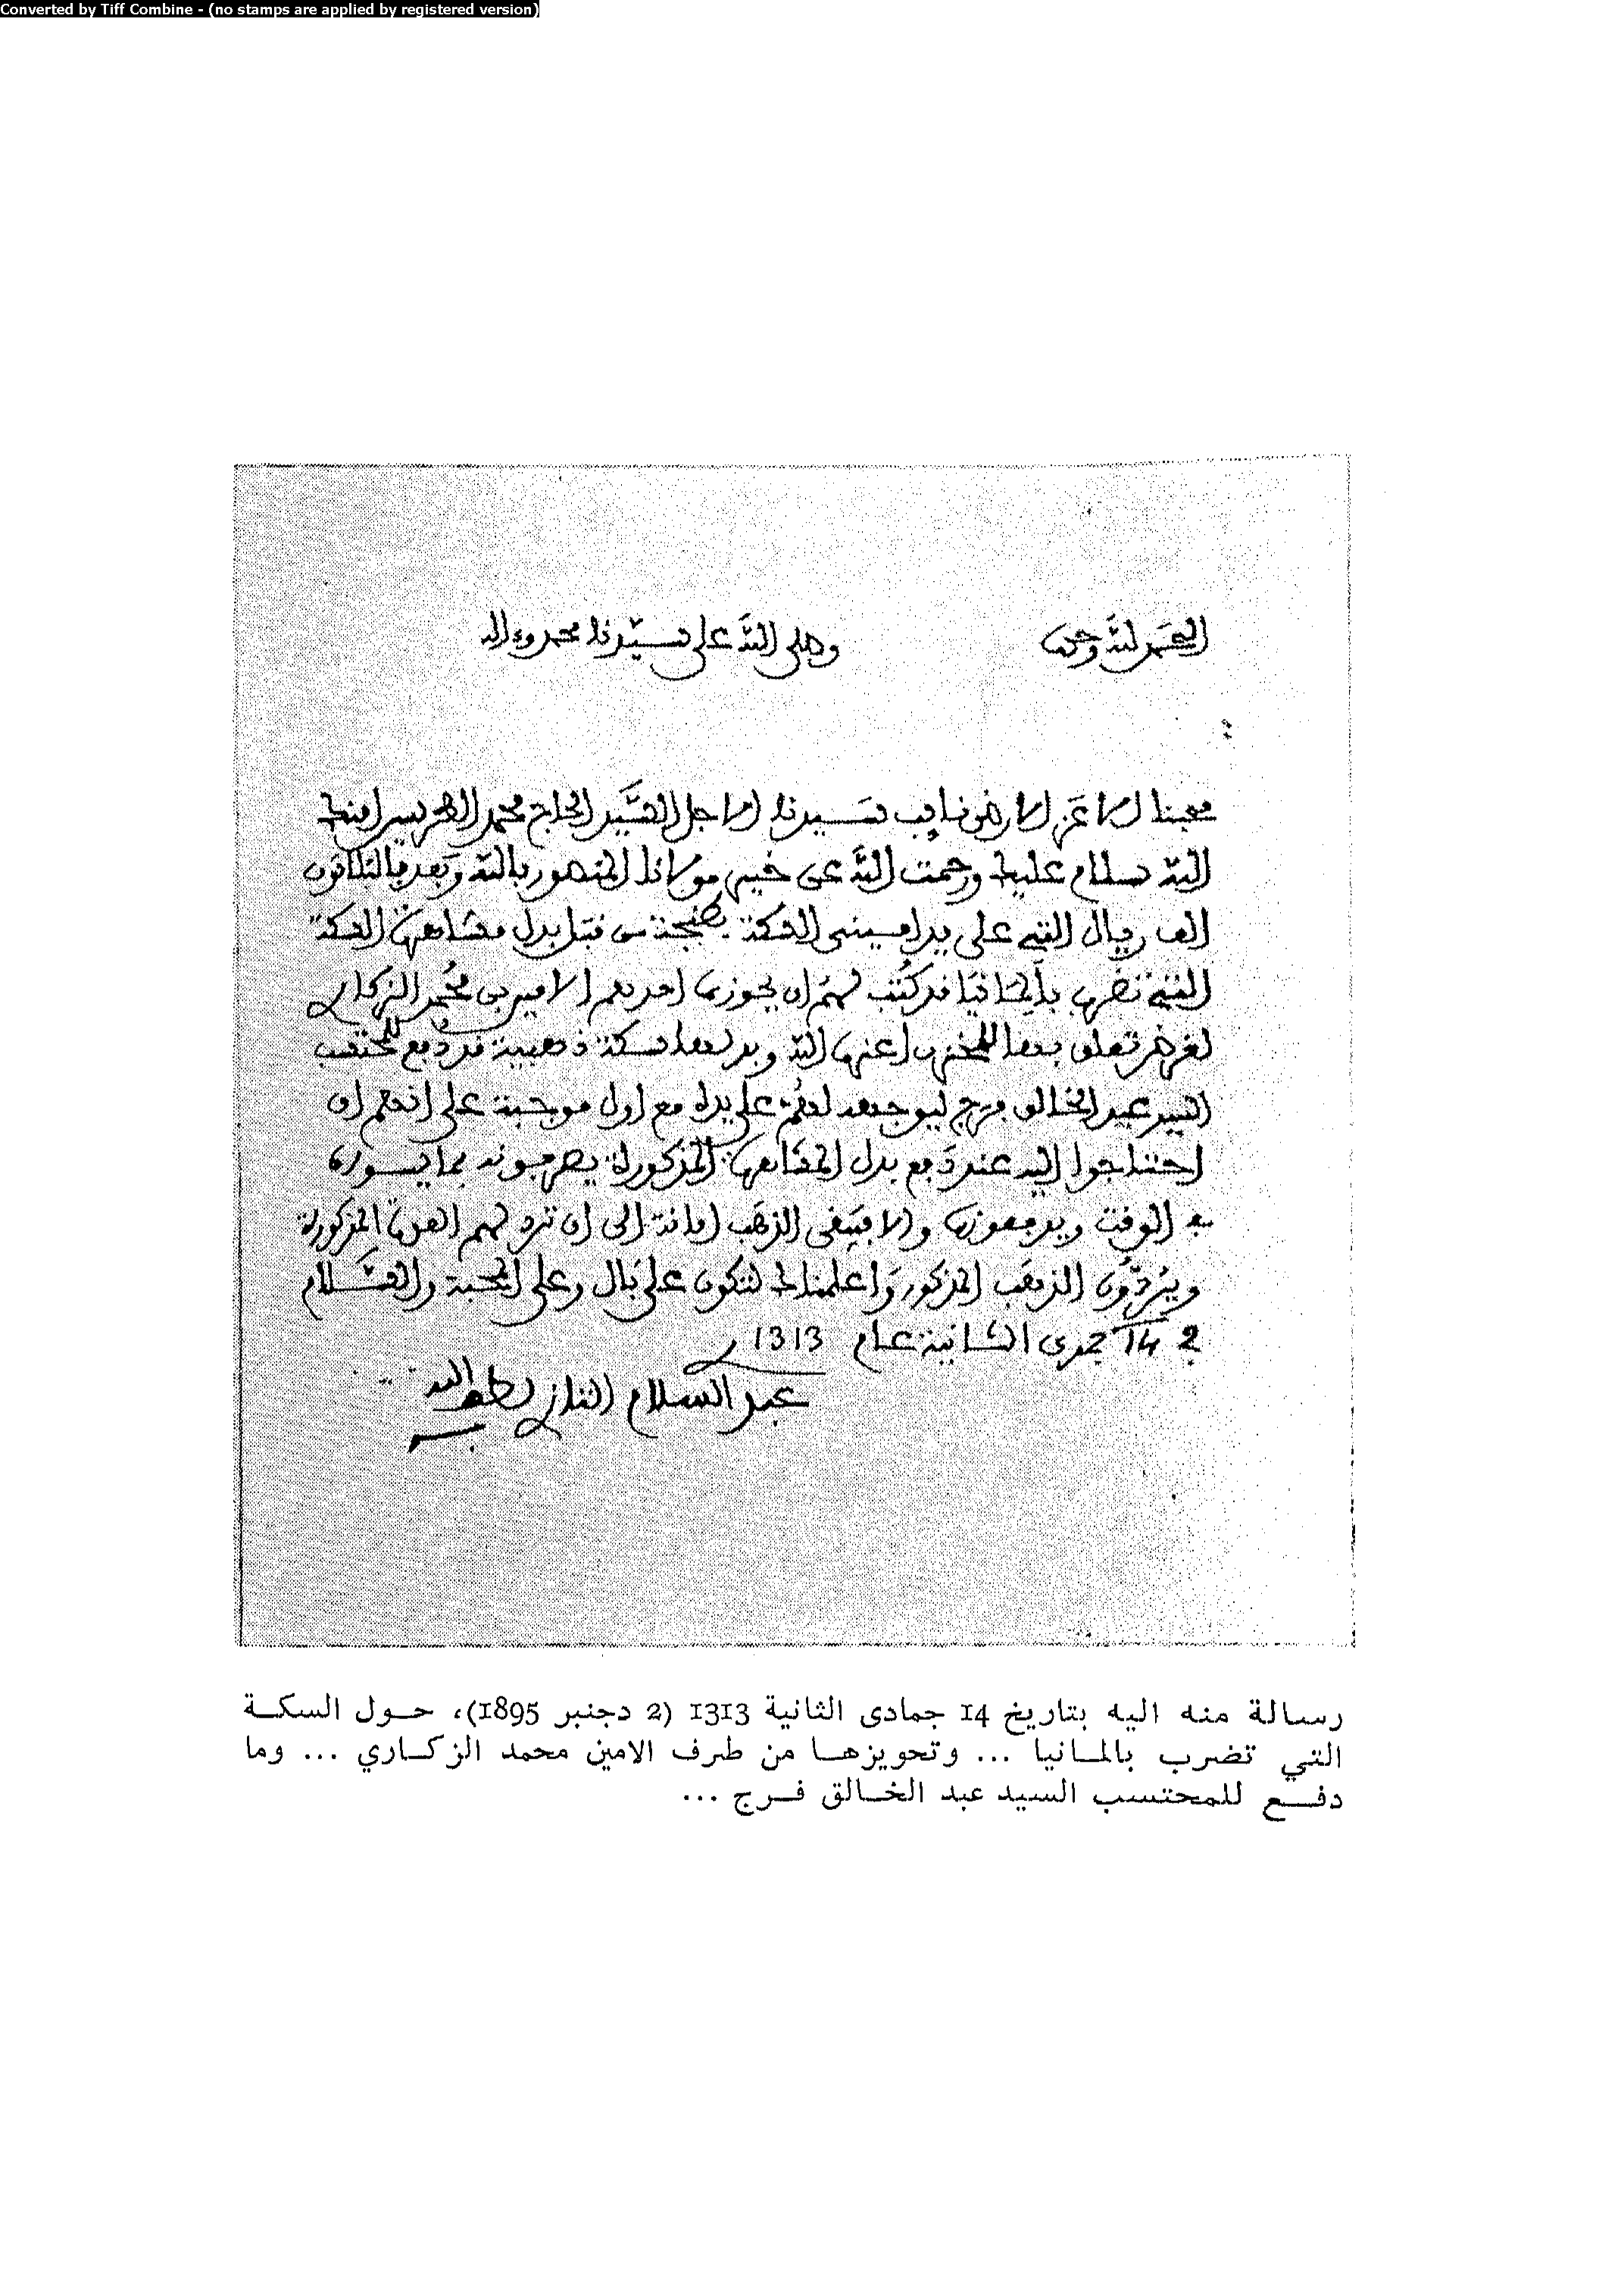 Converted by Tiff Combine - (no stamps are applied by registered version)
الحمد لله وحده
وصلى الله على سيدنا محمد وءاله
محبنا الاعز الارضى نايب سيدنا الاجل السيد الحاج محمد الطريس امنك
الله سلام عليك ورحمت الله عن خير مولانا المنصور بالله وبعد فالثلاثون
الف ريال التي على يد امين السكة بطنجة من قبل بدل مشاهرة السكة
التي تضرب بألمانيا قد كتب لهم ان يحوزها احدهم الامين محمد الزكاري
لغرض تعلق بها للمخزن اعزه الله وبدلها سكة ذهبية قد دفع للمحتسب
السيد عبد الخالق فرج ليوجهه لهم على يدك مع اول موجبة على انهم ان
احتاجوا اليه عند دفع بدل المشاهرة المذكورة يصرفونه بما يسوى
به الوقت ويدفعونه والا فيبقى الذهب امانة الى ان ترد لهم المذكورة
ويردون الذهب المذكور واعلمناك لتكون على بال وعلى المحبة والسلام
في 14 جمدى الثانية عام 1313
عبد السلام التازي لطف الله به
رسالة منه اليه بتاريخ 14 جمادى الثانية 1313 (2 دجنبر 1895)، حول السكة
التي تضرب بالمانيا ... وتحويزها من طرف الامين محمد الزكاري ... وما
دفع للمحتسب السيد عبد الخالق فرج ...